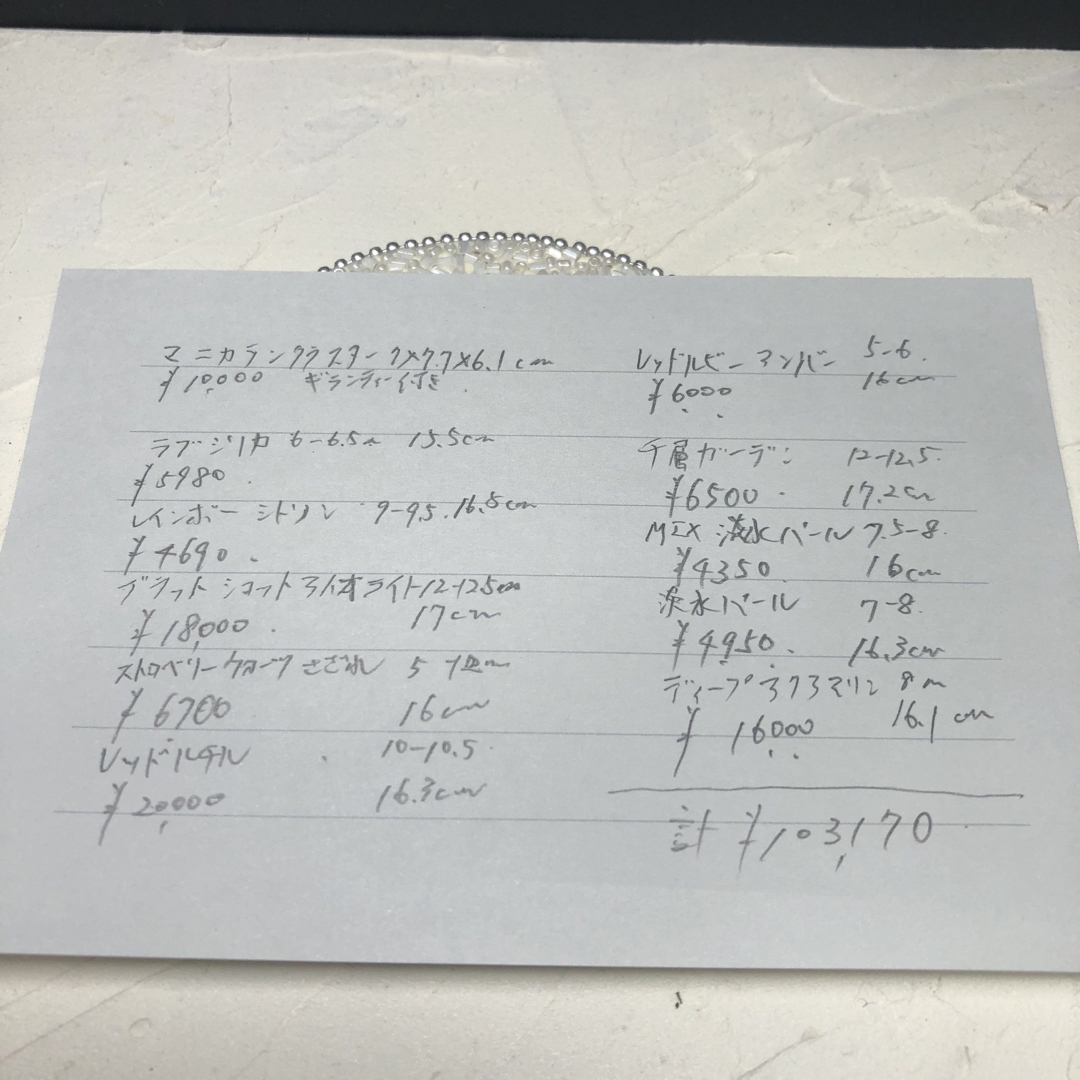 マニカランクラスター 7×7.7×6.1cm
¥10,000 ギランティー付き
ラブジリカ 6-6.5m 15.5cm
¥5980.
レインボー シトリン 9-9.5. 16.8cm
¥4690.
ショット ライト 12-12.5m
¥18,000. 17cm
ストロベリークォーツ さざれ 5
¥6700 16cm
レッドルチル 10-10.5.
¥20,000 16.3cm
レッドルビーアンバー 5-6.
¥6000 16cm
千層ガーデン 12-12.5.
¥6500. 17.2cm
MIX 淡水パール 7.5-8.
¥4350. 16cm
淡水パール 7-8.
¥4950. 16.3cm
ディープアクアマリン 8m
¥16000 16.1cm
計 ¥103,170